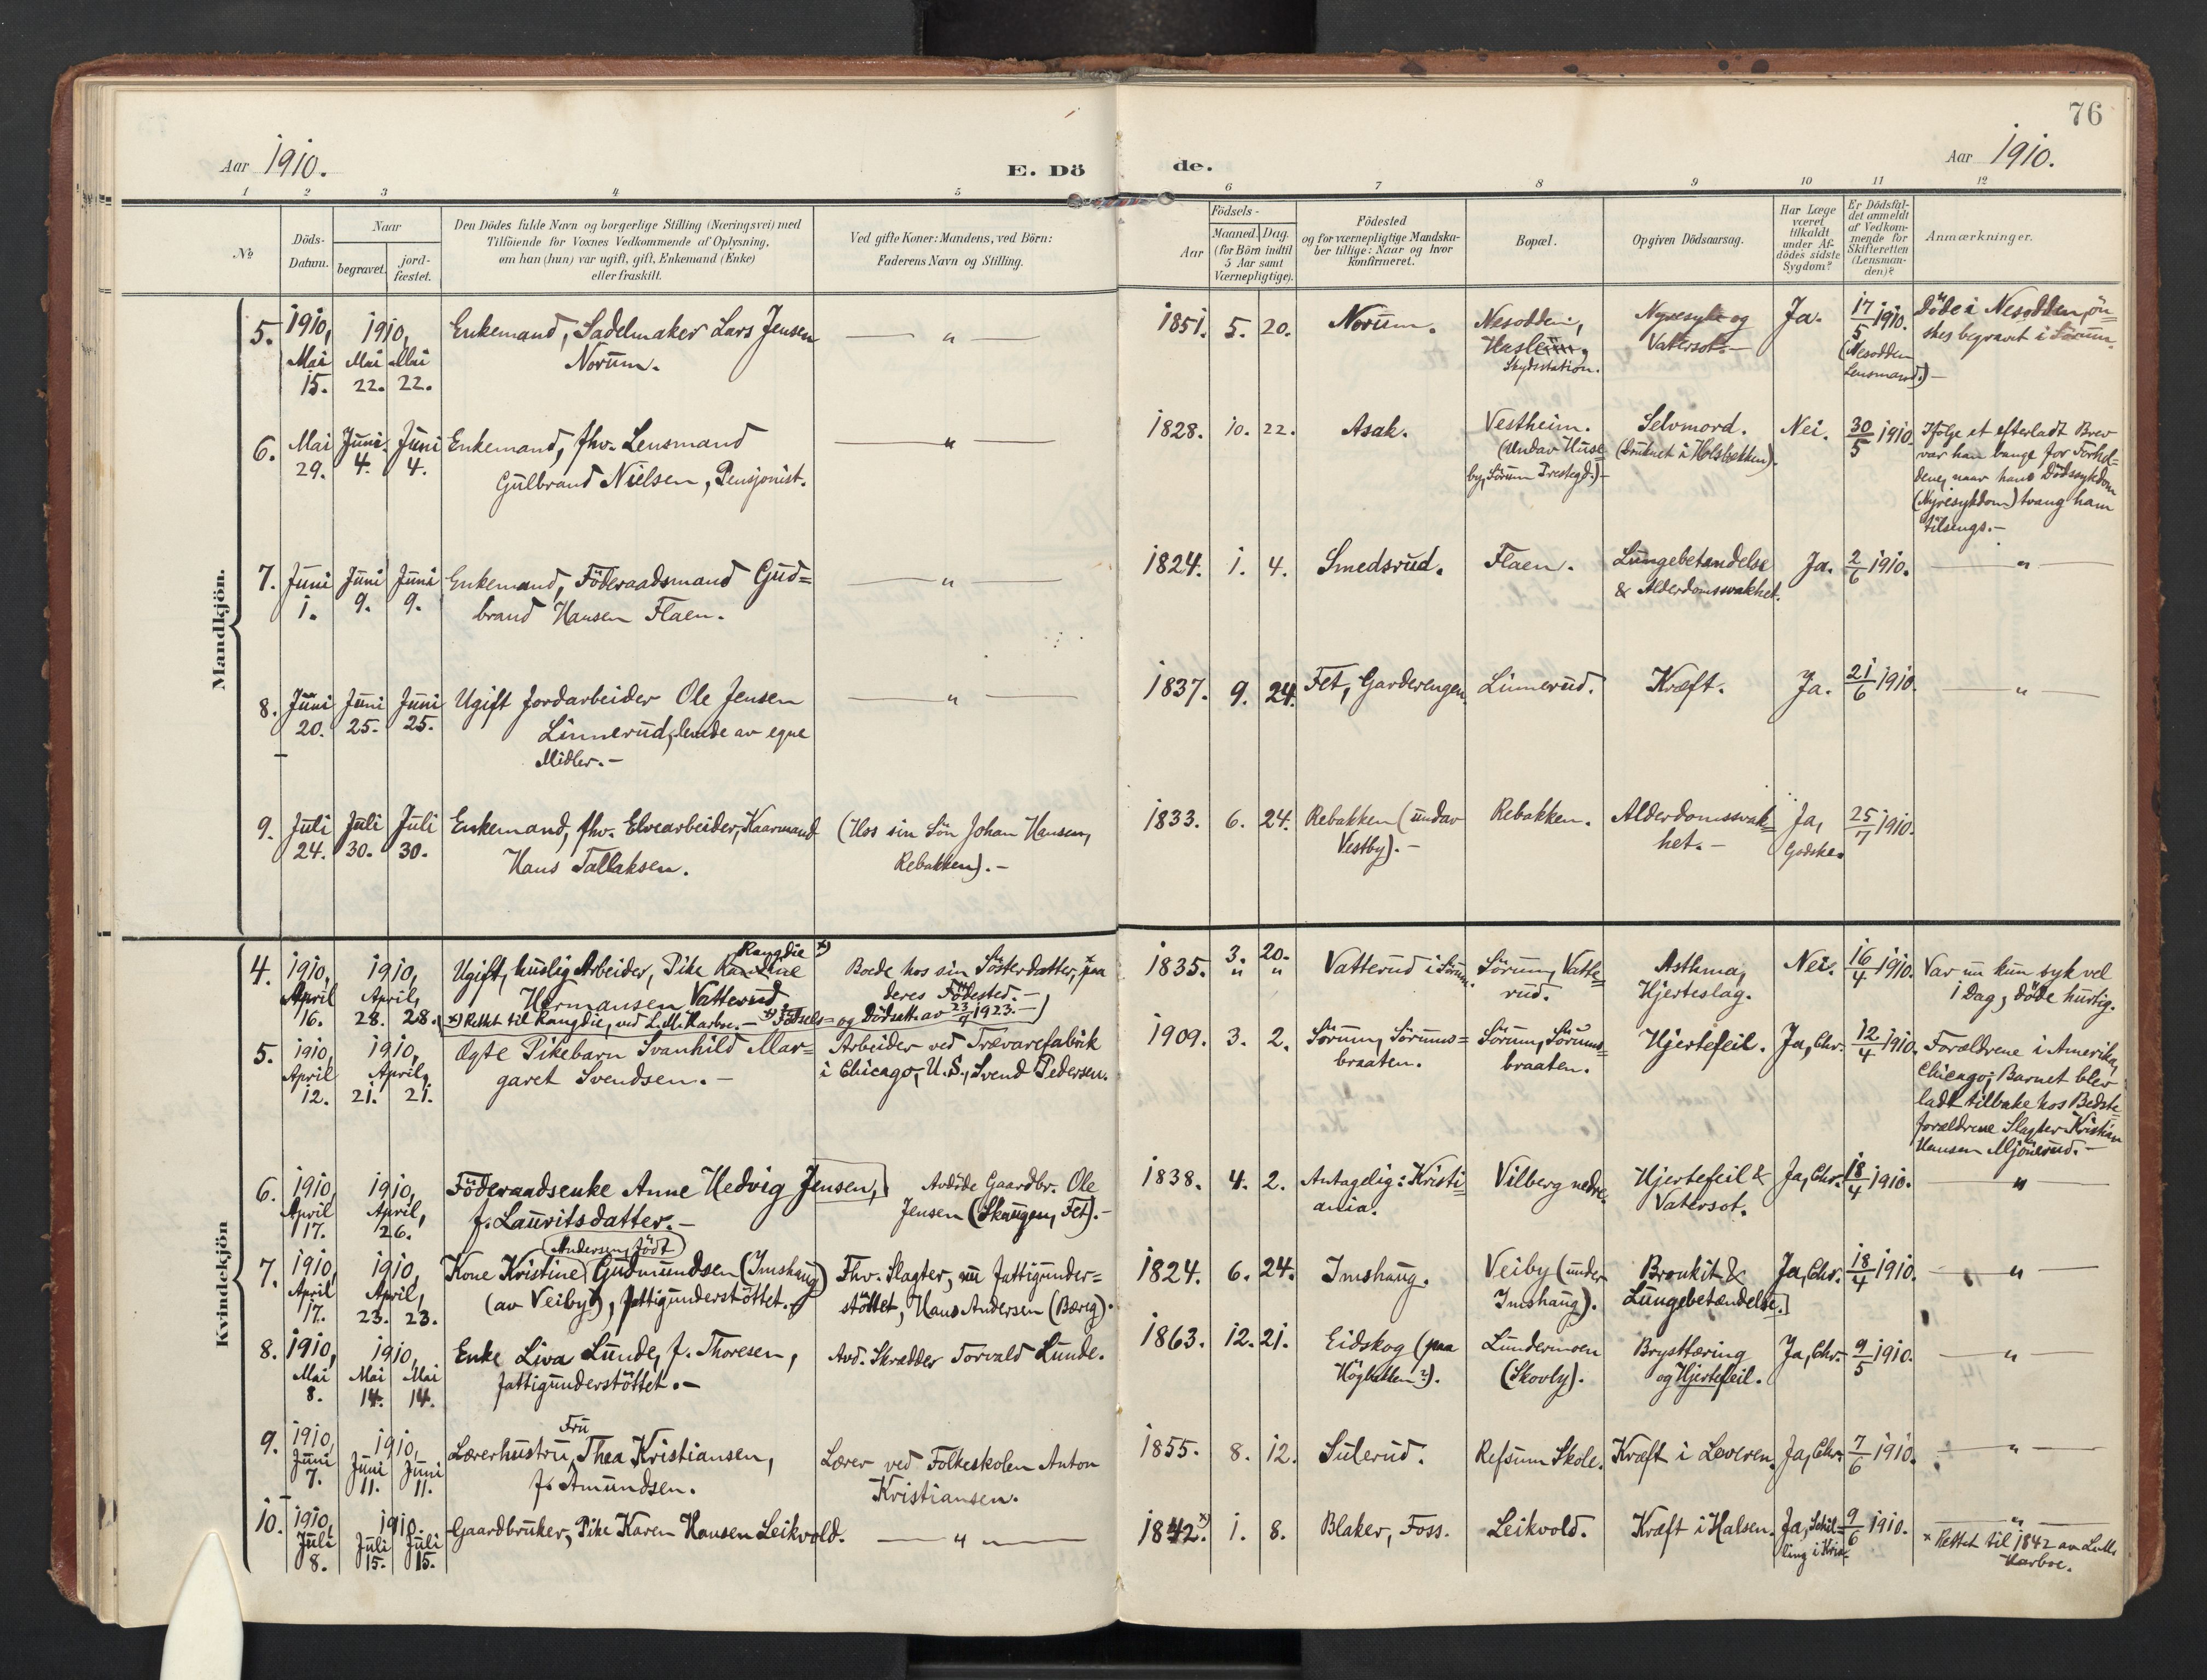 76
Aar 1910.
E. Dö
de.
Aar 1910.
1 2 3 4 5 6 7 8 9 10 11 12
№
Döds-
Datum.
Naar
begravet.
jord-
fæstet.
Den Dödes fulde Navn og borgerlige Stilling (Næringsvei) med
Tilföiende for Voxnes Vedkommende af Oplysning,
om han (hun) var ugift, gift, Enkemand (Enke)
eller fraskilt.
Ved gifte Koner: Mandens, ved Börn:
Faderens Navn og Stilling.
Födsels-
Aar
Maaned. Dag.
(for Börn indtil
5 Aar samt
Værnepligtige).
Födested
og for værnepligtige Mandska-
ber tillige: Naar og hvor
konfirmeret.
Bopæl.
Opgiven Dödsaarsag.
Har Læge
været
tilkaldt
under Af-
dödes sidste
Sygdom?
Er Dödsfal-
det anmeldt
af Vedkom-
mende for
Skifteretten
(Lensman-
den)?
Anmærkninger.
Mandkjön.
5.
1910,
Mai
15.
1910,
Mai Mai
22. 22.
Enkemand, Sadelmaker Lars Jensen
Norum.
— " —
1851. 5. 20.
Norum.
Nesodden,
Hasleum,
Skydsstation.
Nyresyke og
Vatersot.—
Ja.
17/5 1910.
(Nesodden
Lensmand.)—
Döde i Nesodden, ön=
skes begravet i Sörum.
6.
Mai
29.
Juni Juni
4. 4.
Enkemand, fhv. Lensmand
Gulbrand Nielsen, Pensjonist.
— " —
1828. 10. 22.
Asak.
Vestheim.
(Undav Huse=
by, Sörum Prestegd.)—
Selvmord.
(Druknet i Holsbekken).
Nei.
30/5 1910.
Ifölge et efterladt Brev
var han bange for Forhol=
dene, naar hans Dödssykdom
(Nyresykdom) tvang ham
tilsengs.—
7.
Juni
1.
Juni Juni
9. 9.
Enkemand, Föderaadsmand Gud=
brand Hansen Flaen.
— " —
1824. 1. 4.
Smedsrud.
Flaen.
Lungebetændelse
& Alderdomssvakhet.
Ja.
2/6 1910.
— " —
8.
Juni
20.
Juni Juni
25. 25.
Ugift Jordarbeider Ole Jensen
Linnerud, levde av egne
Midler.—
— " —
1837. 9. 24.
Fet, Garderengen.
Linnerud.
Kræft.
Ja.
21/6 1910.
— " —
9.
Juli
24.
Juli Juli
30. 30.
Enkemand, fhv. Elvearbeider, Kaarmand
Hans Tallaksen.
(Hos sin Sön Johan Hansen,
Rebakken).—
1833. 6. 24.
Rebakken (undav
Vestby).—
Rebakken.
Alderdomssvak=
het.—
Ja,
Godske.
25/7 1910.
Kvindekjön
4.
1910,
April
16.
1910,
April,
28. 28.
Rangdie x)
Ugift, huslig Arbeider, Pike Randine
Hermansen Vatterud.
x) Rettet til Rangdie, ved L. M. Harboe.— x) Födsels= og Dödsatt. av 23/9 1923.—)
Boede hos sin Sösterdatter, paa
deres Födested.—
1835. 3. 20.
" "
Vatterud i Sörum.
Sörum, Vatte=
rud.
Asthma,
Hjerteslag.
Nei.
16/4 1910.
Var nu kun syk vel
1 Dag, döde hurtig.
5.
1910,
April
12.
1910,
April,
21. 21.
Ogte Pikebarn Svanhild Mar=
garet Svendsen.—
Arbeider ved Trævarefabrik
i Chicago, U.S., Svend Pedersen.
1909. 3. 2.
Sörum, Sörums=
braaten.
Sörum, Sörums=
braaten.
Hjertefeil.
Ja, Chr.
12/4 1910.
Forældrene i Amerika,
Chicago; Barnet blev
ladt tilbake hos Bedste=
forældrene Slagter Kristian
Hansen Mjönerud.—
6.
1910,
April
17.
1910,
April,
26.
Föderaadsenke Anne Hedvig Jensen,
f. Lauritsdatter.—
Avdöde Gaardbr. Ole
Jensen (Skaugen, Fet).—
1838. 4. 2.
Antagelig: Kristi=
ania.
Vilberg nedre.
Hjertefeil &
Vatersot.
Ja, Chr.
18/4 1910.
— " —
7.
1910,
April
17.
1910,
April,
23. 23.
(Andersen, födt)
Kone Kristine Gudmundsen (Imshaug)
(av Veiby), fattigunderstöttet.
Fhv. Slagter, nu fattigunder=
stöttet, Hans Andersen (Bærig).
1824. 6. 24.
Imshaug.
Veiby (under
Imshaug).
Bronkit &
Lungebetændelse.
Ja, Chr.
18/4 1910.
— " —
8.
1910,
Mai
8.
1910,
Mai Mai
14. 14.
Enke Liva Lunde, f. Thoresen,
fattigunderstöttet.—
Avd. Skrædder Torvald Lunde.
1863. 12. 21.
Eidskog (paa
Högbetten?).
Lundermoen
(Skovly).
Brysttæring
og Hjertefeil.
Ja, Chr.
9/5 1910.
— " —
9.
1910,
Juni
7.
1910,
Juni Juni
11. 11.
Fru
Lærerhustru, Thea Kristiansen,
f. Amundsen.
Lærer ved Folkeskolen Anton
Kristiansen.
1855. 8. 12.
Suterud.
Refsum Skole.
Kræft i Leveren.
Ja, Chr.
7/6 1910.
— " —
10.
1910,
Juli
8.
1910.
Juli Juli
15. 15.
Gaardbruker, Pike Karen Hansen Leikvold.
— " —
1842.x) 1. 8.
Blaker, Foss.
Leikvold.
Kræft i Halsen.
Ja, Schil=
ling i Kria.
9/6 1910.
— " —
x Rettet til 1842 av
Harboe.